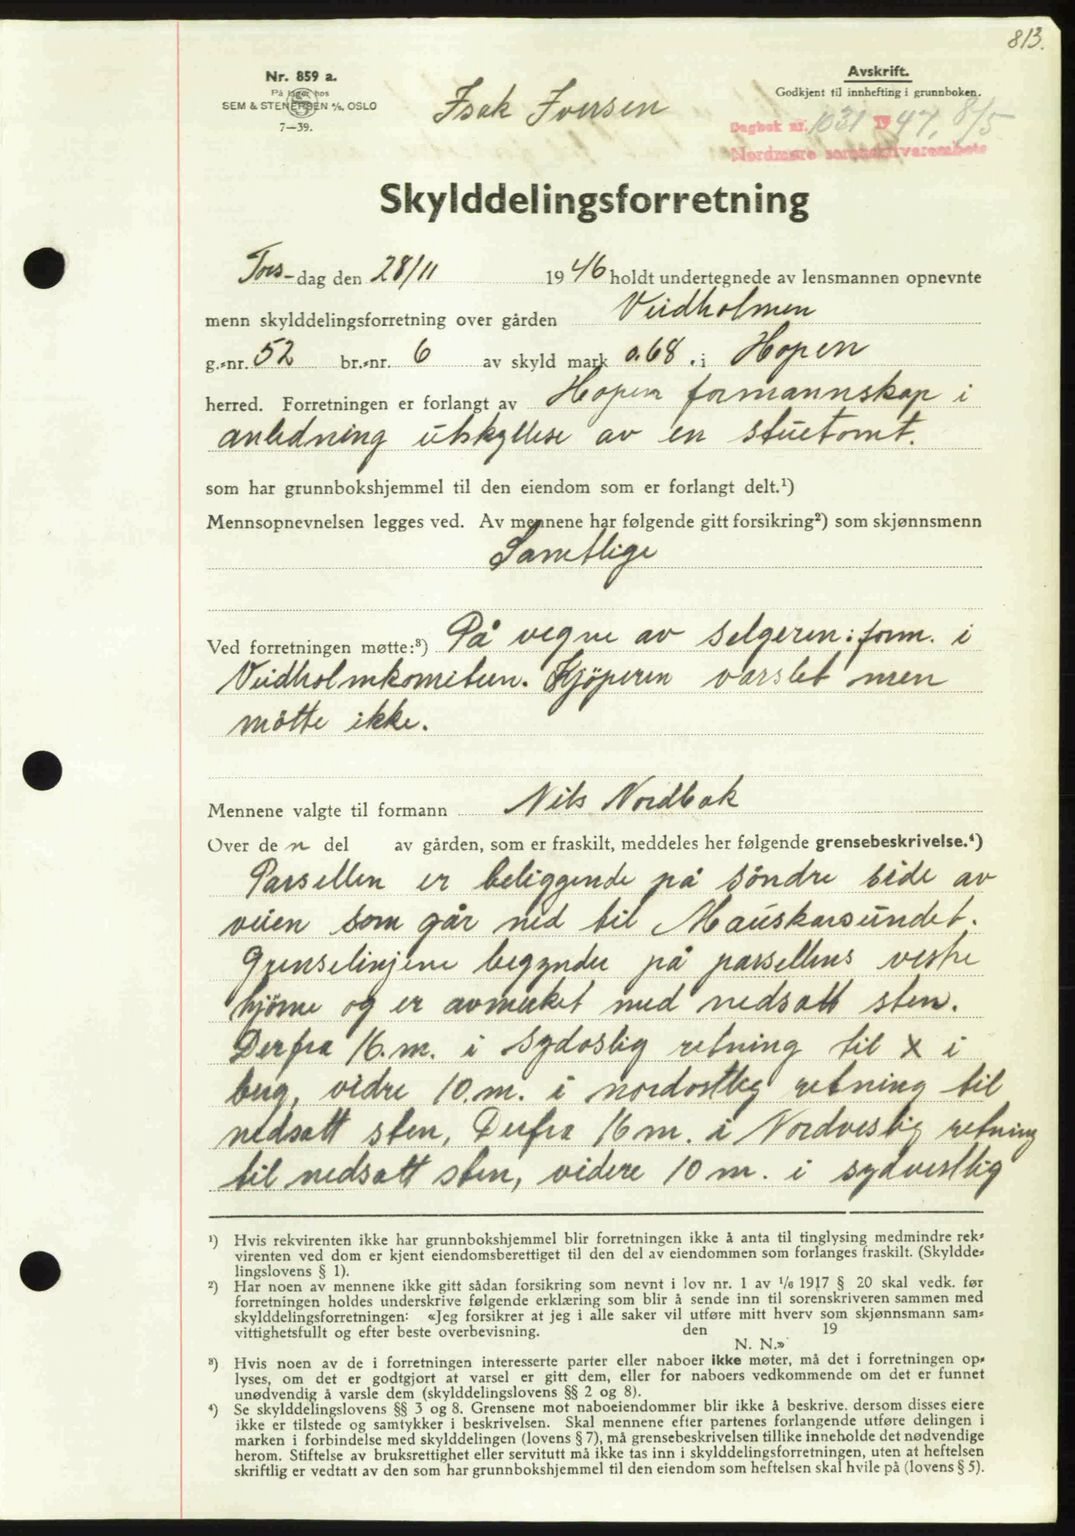 813.
Nr. 859 a.
På lager hos
SEM & STENERSEN A/S, OSLO
7—39.
Isak Iversen
Avskrift.
Godkjent til innhefting i grunnboken.
Dagbok nr. 1031 1947, 8/5
Nordmøre sorenskriverembete
Skylddelingsforretning
Tors-dag den 28/11 1946 holdt undertegnede av lensmannen opnevnte
menn skylddelingsforretning over gården Veidholmen
g.-nr. 52 br.-nr. 6 av skyld mark 0.68 . i Hopen
herred. Forretningen er forlangt av Hopen formannskap i
anledning utskyllese av en stuetomt.
som har grunnbokshjemmel til den eiendom som er forlangt delt.¹)
Mennsopnevnelsen legges ved. Av mennene har følgende gitt forsikring²) som skjønnsmenn
Samtlige
Ved forretningen møtte:³) På vegne av selgeren: form. i
Veidholmkomiteen. Kjöperen varslet men
møtte ikke.
Mennene valgte til formann Nils Nordbak
Over de n del av gården, som er fraskilt, meddeles her følgende grensebeskrivelse.⁴)
Parsellen er beliggende på söndre side av
veien som går ned til Mauskarsundet.
Grenselinjene begynder på parsellens vestre
hjörne og er avmerket med nedsatt sten.
Derfra 16.m. i sydøslig retning til x i
berg, vidre 10.m. i nordostleg retning til
nedsatt sten, Derfra 16 m. i Nordvestlig retning
til nedsatt sten, videre 10 m. i sydvestlig
¹) Hvis rekvirenten ikke har grunnbokshjemmel blir forretningen ikke å anta til tinglysing medmindre rek-
virenten ved dom er kjent eiendomsberettiget til den del av eiendommen som forlanges fraskilt. (Skyldde-
lingslovens § 1).
²) Har noen av mennene ikke gitt sådan forsikring som nevnt i lov nr. 1 av 1/6 1917 § 20 skal vedk. før
forretningen holdes underskrive følgende erklæring som blir å sende inn til sorenskriveren sammen med
skylddelingsforretningen: «Jeg forsikrer at jeg i alle saker vil utføre mitt hverv som skjønnsmann sam-
vittighetsfullt og efter beste overbevisning. den 19
N. N.»
³) Hvis noen av de i forretningen interesserte parter eller naboer ikke møter, må det i forretningen op-
lyses, om det er godtgjort at varsel er gitt dem, eller for naboers vedkommende om det er funnet
unødvendig å varsle dem (skylddelingslovens §§ 2 og 8).
⁴) Se skylddelingslovens §§ 3 og 8. Grensene mot naboeiendommer blir ikke å beskrive. dersom disses eiere
ikke er tilstede og samtykker i beskrivelsen. Skal mennene efter partenes forlangende utføre delingen i
marken i forbindelse med skylddelingen (lovens § 7), må grensebeskrivelsen tillike inneholde det nødvendige
herom. Stiftelse av bruksrettighet eller servitutt må ikke tas inn i skylddelingsforretningen, uten at heftelsen
skriftlig er vedtatt av den som har grunnbokshjemmel til den eiendom som heftelsen skal hvile på (lovens § 5).